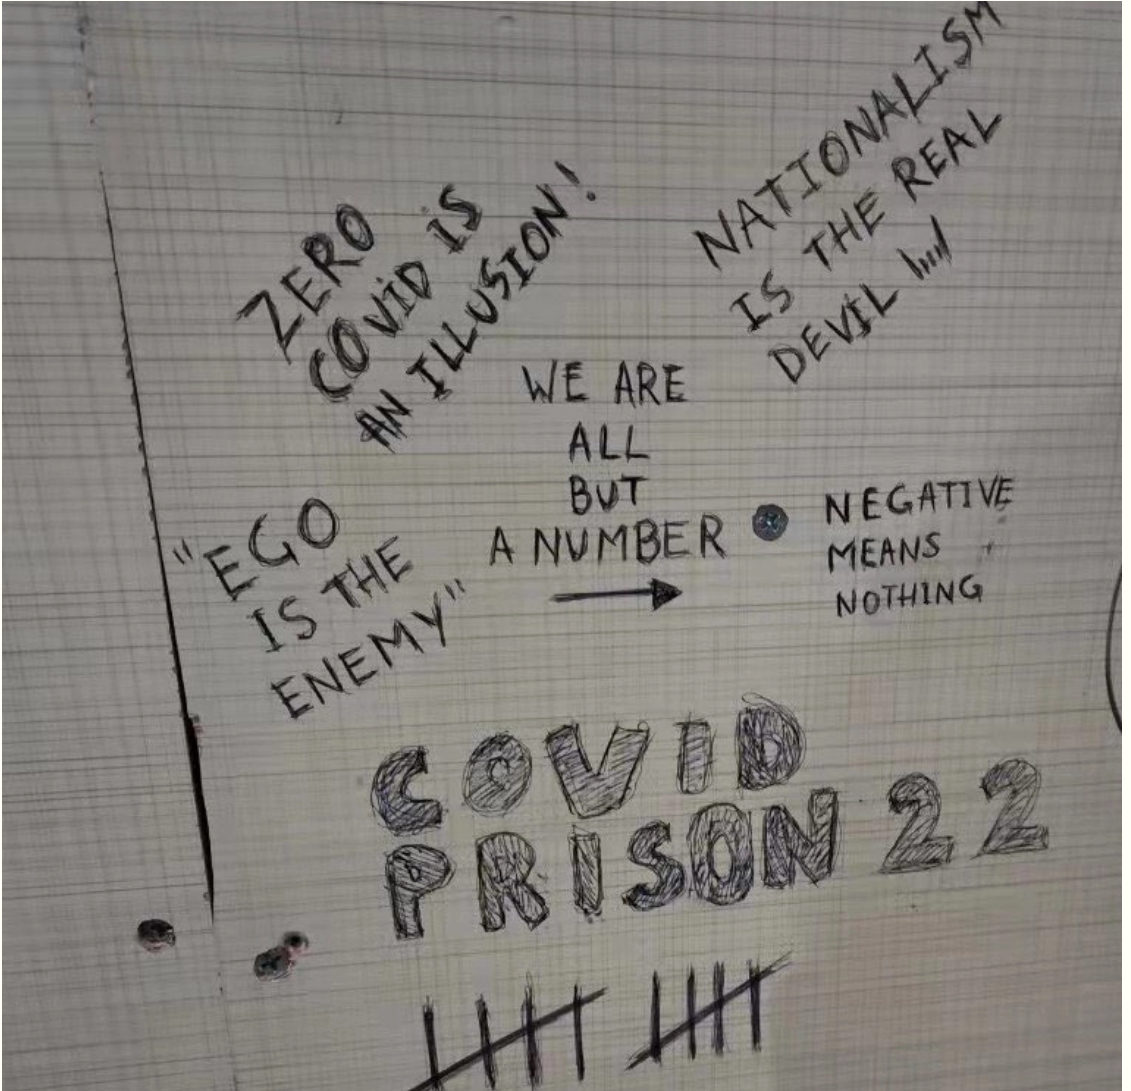 ZERO
COVID IS
AN ILLUSION!
NATIONALISM
IS THE REAL
DEVIL
WE ARE
ALL
BUT
A NUMBER
"EGO
IS THE
ENEMY"
NEGATIVE
MEANS
NOTHING
COVID
PRISON 22